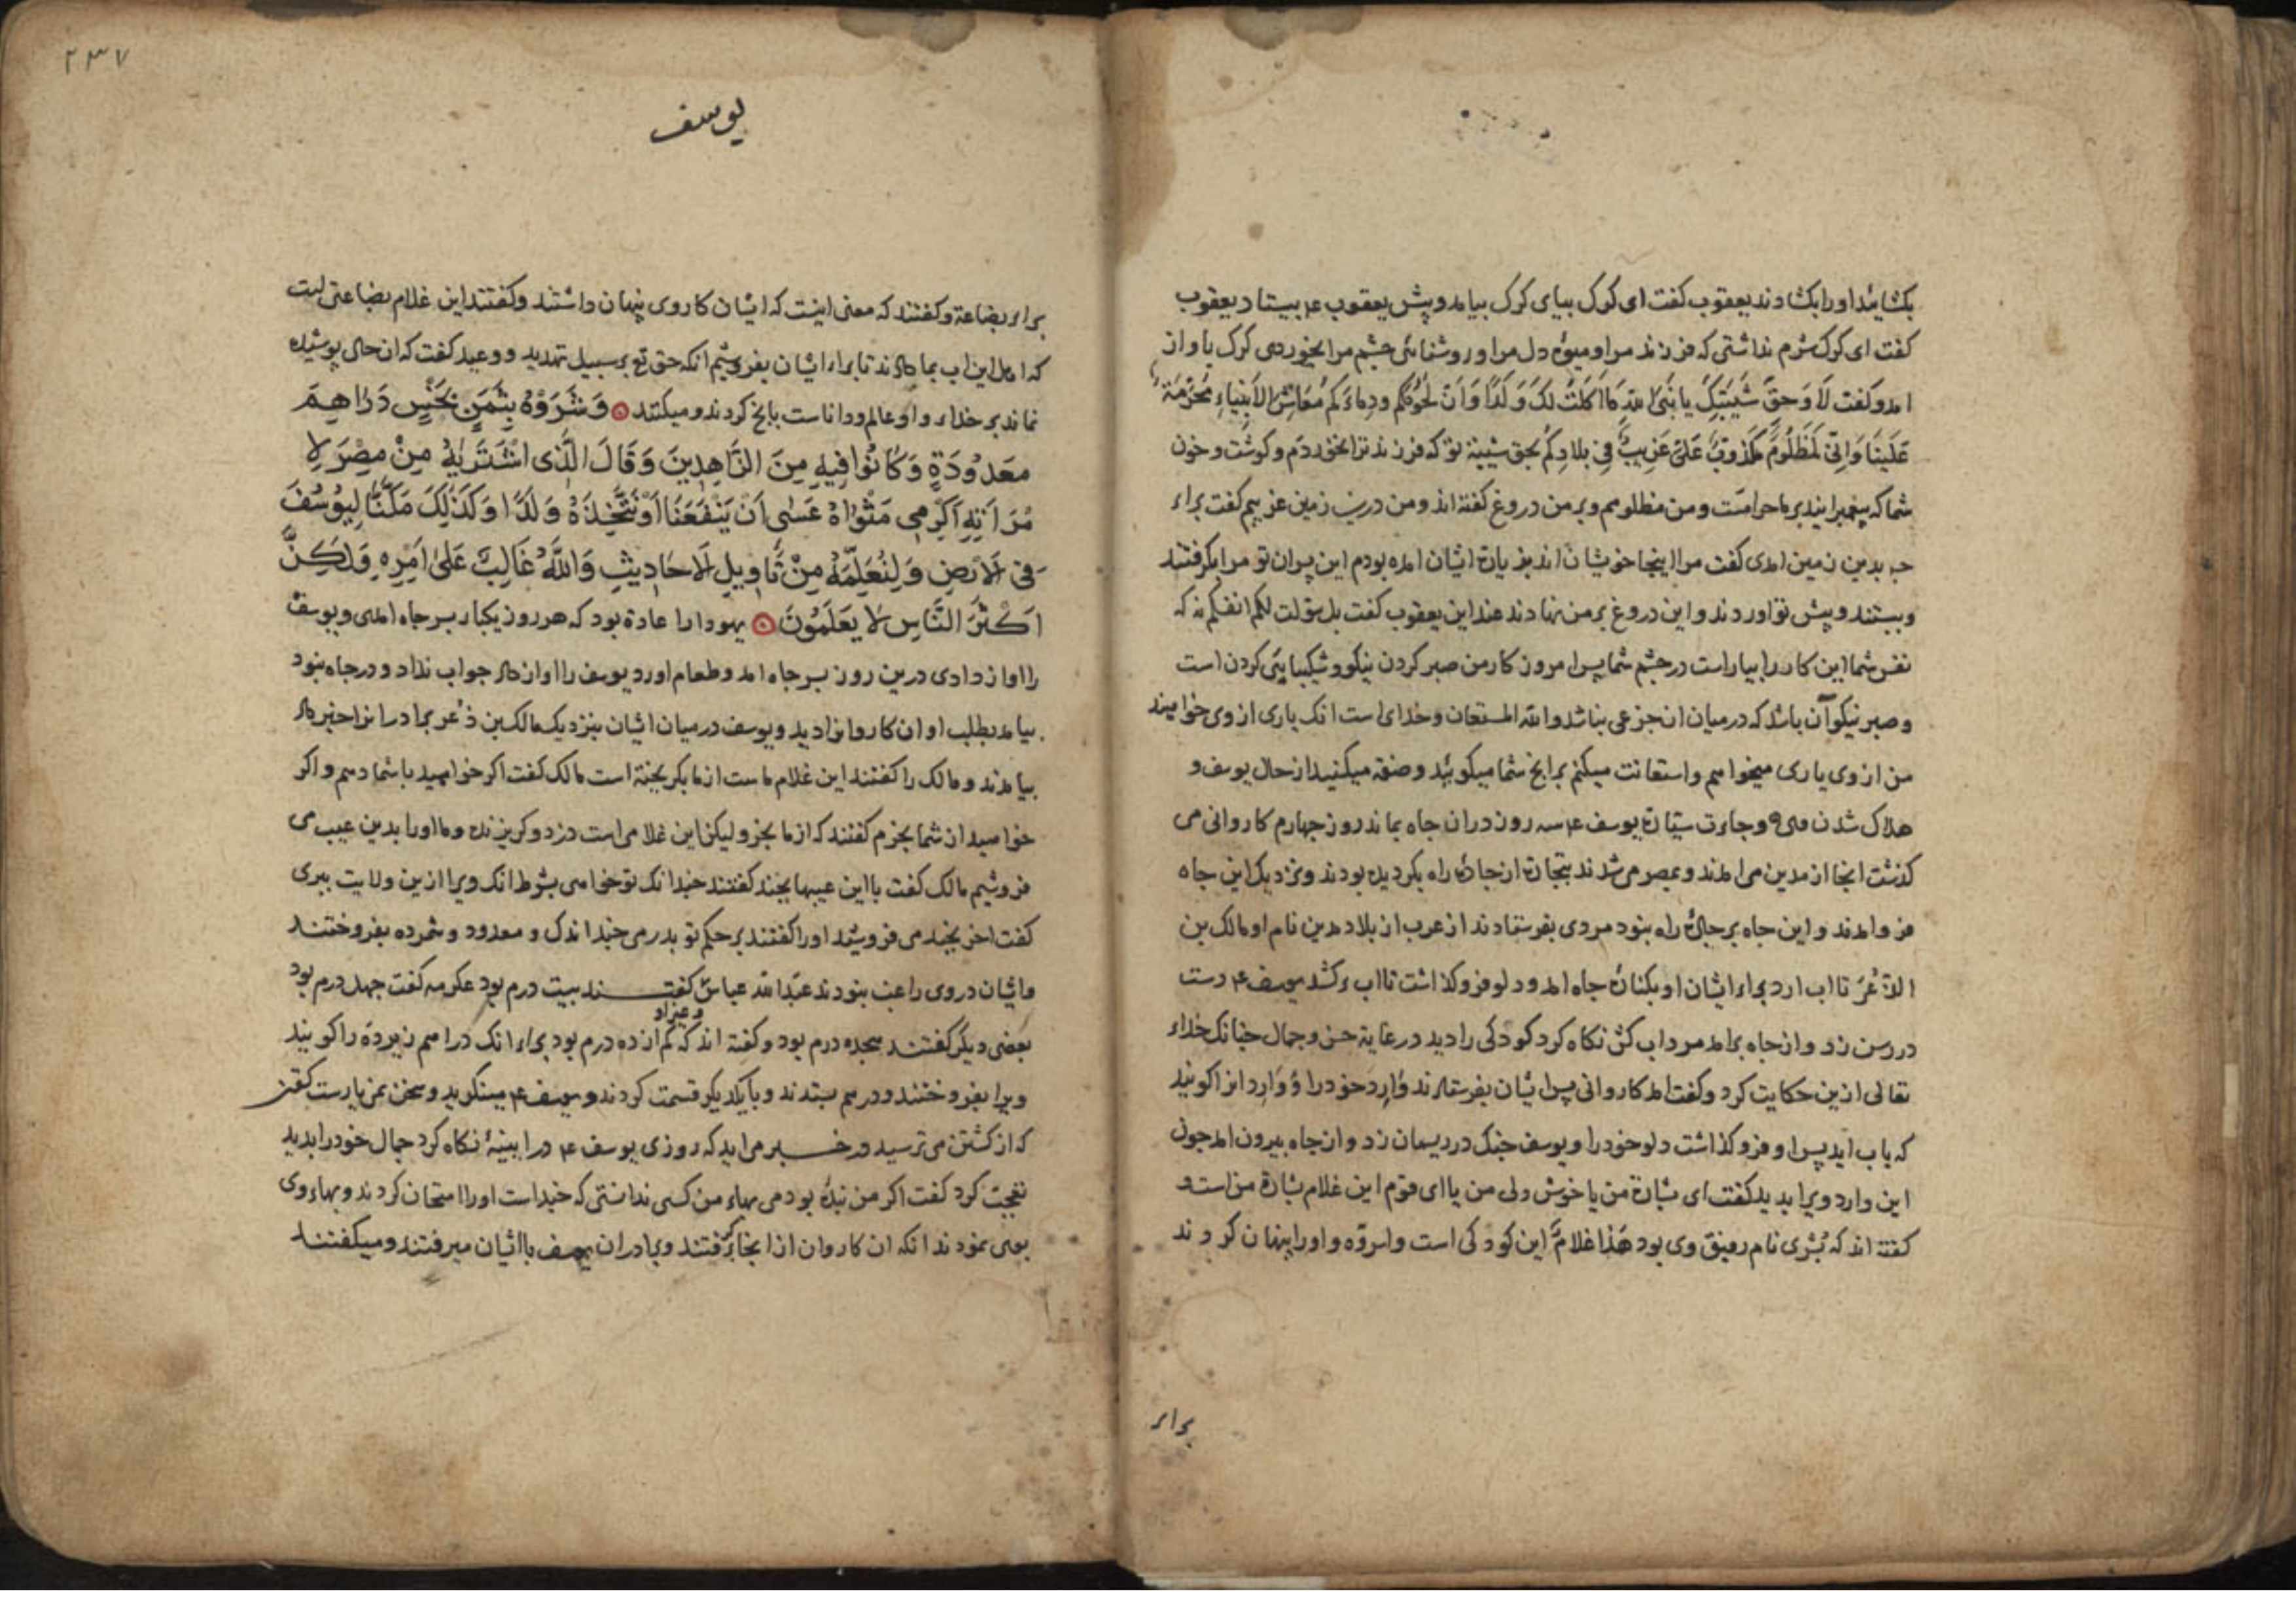 بکشایند او را بکشادند یعقوب کفت ای کرک بیای کرک بیامد و پیش یعقوب ع بیستاد یعقوب
کفت ای کرک شرم نداشتی که فرزند مرا و میوۀ دل مرا و روشنائی چشم مرا بخوردی کرک باواز
امد و کفت لَا وَحقِّ شَیْبَتِکَ یا نَبِیَّ اللهِ مَا اَکَلتُ لَکَ وَلَدًا وَاَنَّ لُحُوْمَکُم ودِماءَکم مَعَاشِرَ الاَنْبِیاءِ مُحَرَّمَة
عَلَینَا وَاِنّی لَمَظلُومٌ مَکذوبٌ عَلَیَّ غَرِیبٌ فِی بلادِکُم بحق شیبة تو که فرزند ترا نخوردم و کوشت و خون
شما که پیغمبرانید بر ما حرامست و من مظلومم و بر من دروغ کفته اند و من درین زمین غریبم کفت براء
چه بدین زمین امدی کفت مرا اینجا خویشان اند بزیارة ایشان امده بودم این پسران تو مرا بکرفتند
و ببستند و پیش تو اوردند و این دروغ بر من نهادند عند این یعقوب کفت بل سولت لکم انفسکم نه که
نفس شما این کار را بیاراست در چشم شما پس امروز کار من صبر کردن نیکو و شکیبایی کردن است
و صبر نیکو آن باشد که در میان ان جزعی نباشد والله المستعان و خدای است انک یاری از وی خواهند
من از وی یاری میخواهم و استعانت میکنم برانج شما میکوئید و صفة میکنید از حال یوسف و
هلاک شدن وی و جاءت سیّارة یوسف ع سه روز دران چاه بماند روز چهارم کاروانی می
کذشت انجا از مدین می امدند و بمصر می شدند بتجارة از جادۀ راه بکردیده بودند و نزدیک این چاه
فرو امدند و این چاه بر جادۀ راه نبود مردی بفرستادند از عرب از بلاد مدین نام او مالک بن
الذُّعْرَ تا اب ارد براء ایشان او بکنارۀ چاه امد و دلو فرو کذاشت تا اب برکشد یوسف ع دست
در رسن زد و از چاه برامد مرد اب کش نکاه کرد کودکی را دید در غایة حسن و جمال چنانک خداء
تعالی ازین حکایت کرد و کفت امد کاروانی پس ایشان بفرستادند وَارِدَ خود را و وَارِد انرا کویند
که باب اید پس او فرو کذاشت دلو خود را و یوسف چنک در ریسمان زد و از چاه بیرون امد چون
این وارد ویرا بدید کفت ای بشارة من یا خوش دلی من یا ای قوم این غلام بشارة من است و
کفته اند که بُشری نام رفیق وی بود هَذا غلامٌ این کودکی است واسرّوه و او را پنهان کردند
براء
۲۳۷
یوسف
براء بضاعة و کفتند که معنی اینست که ایشان کار وی پنهان داشتند و کفتند این غلام بضاعتی است
که اهل این اب بما داده اند تا براء ایشان بفروشیم انکه حق تع بر سبیل تهدید و وعید کفت که ان حال پوشیده
نماند بر خداء و او عالم و دانا است بانچ کردند و میکنند وَشَرَوْهُ بِثَمَنٍ بَخْسٍ دَرَاهِمَ
مَعدُودَةٍ وَکَانُوا فِیهِ مِنَ الزَّاهِدِینَ وَقَالَ الَّذِی اشْتَرَیٰهُ مِنْ مِصْرَ لِا
مْرَاَتِهِ اَکْرِمِی مَثْوٰاهُ عَسٰی اَنْ یَنْفَعَنَا اَوْنَتَّخِذَهُ وَلَدًا وَکَذٰلِکَ مَکَّنَّا لِیُوسُفَ
فِی الْاَرْضِ وَلِنُعَلِّمَهُ مِنْ تَاْوِیلِ الْاَحَادِیثِ وَاللّٰهُ غَالِبٌ عَلٰی اَمْرِهِ وَلٰکِنَّ
اَکْثَرَ النَّاسِ لَا یَعْلَمُونَ یهودا را عادة بود که هر روز یکبار بسر چاه امدی و یوسف
را اواز دادی درین روز بسر چاه امد و طعام اورد یوسف را اواز داد جواب نداد و در چاه نبود
بیامد بطلب او ان کاروانرا دید و یوسف در میان ایشان بنزدیک مالک بن ذُعر برادرانرا خبر داد
بیامدند و مالک را کفتند این غلام ماست از ما بکریخته است مالک کفت اکر خواهید باشما دهم و اکر
خواهید از شما بخرم کفتند که از ما بخر ولیکن این غلامی است دزد و کریزنده و ما او را بدین عیب می
فروشیم مالک کفت با این عیبها بچند کفتند چندانک تو خواهی بشرط انک ویرا ازین ولایت ببری
کفت اخر بچند می فروشید او را کفتند بر حکم تو بدرمی چند اندک و معدود و شمرده بفروختند
و ایشان در وی راغب نبودند عبدالله عباس کفتند بیست درم بود عکرمه کفت چهل درم بود
بعضی دیکر کفتند هجده درم بود و کفته اند که کم از ده درم بود براء انک دراهم زبر ده را کویند
ویرا بفروختند و درهم بستدند و بایکدیکر قسمت کردند و یوسف ع مینکرید و سخن نمی یارست کفتن
که از کشتن می ترسید و در خبر می اید که روزی یوسف ع در ایینۀ نکاه کرد جمال خود را بدید
تعجب کرد کفت اکر من بندۀ بودمی بهاء من کسی ندانستی که چند است او را امتحان کردند و بهاء وی
بوی نمودند انکه ان کاروان از انجا برکرفتند و برادران یوسف با ایشان میرفتند و میکفتند